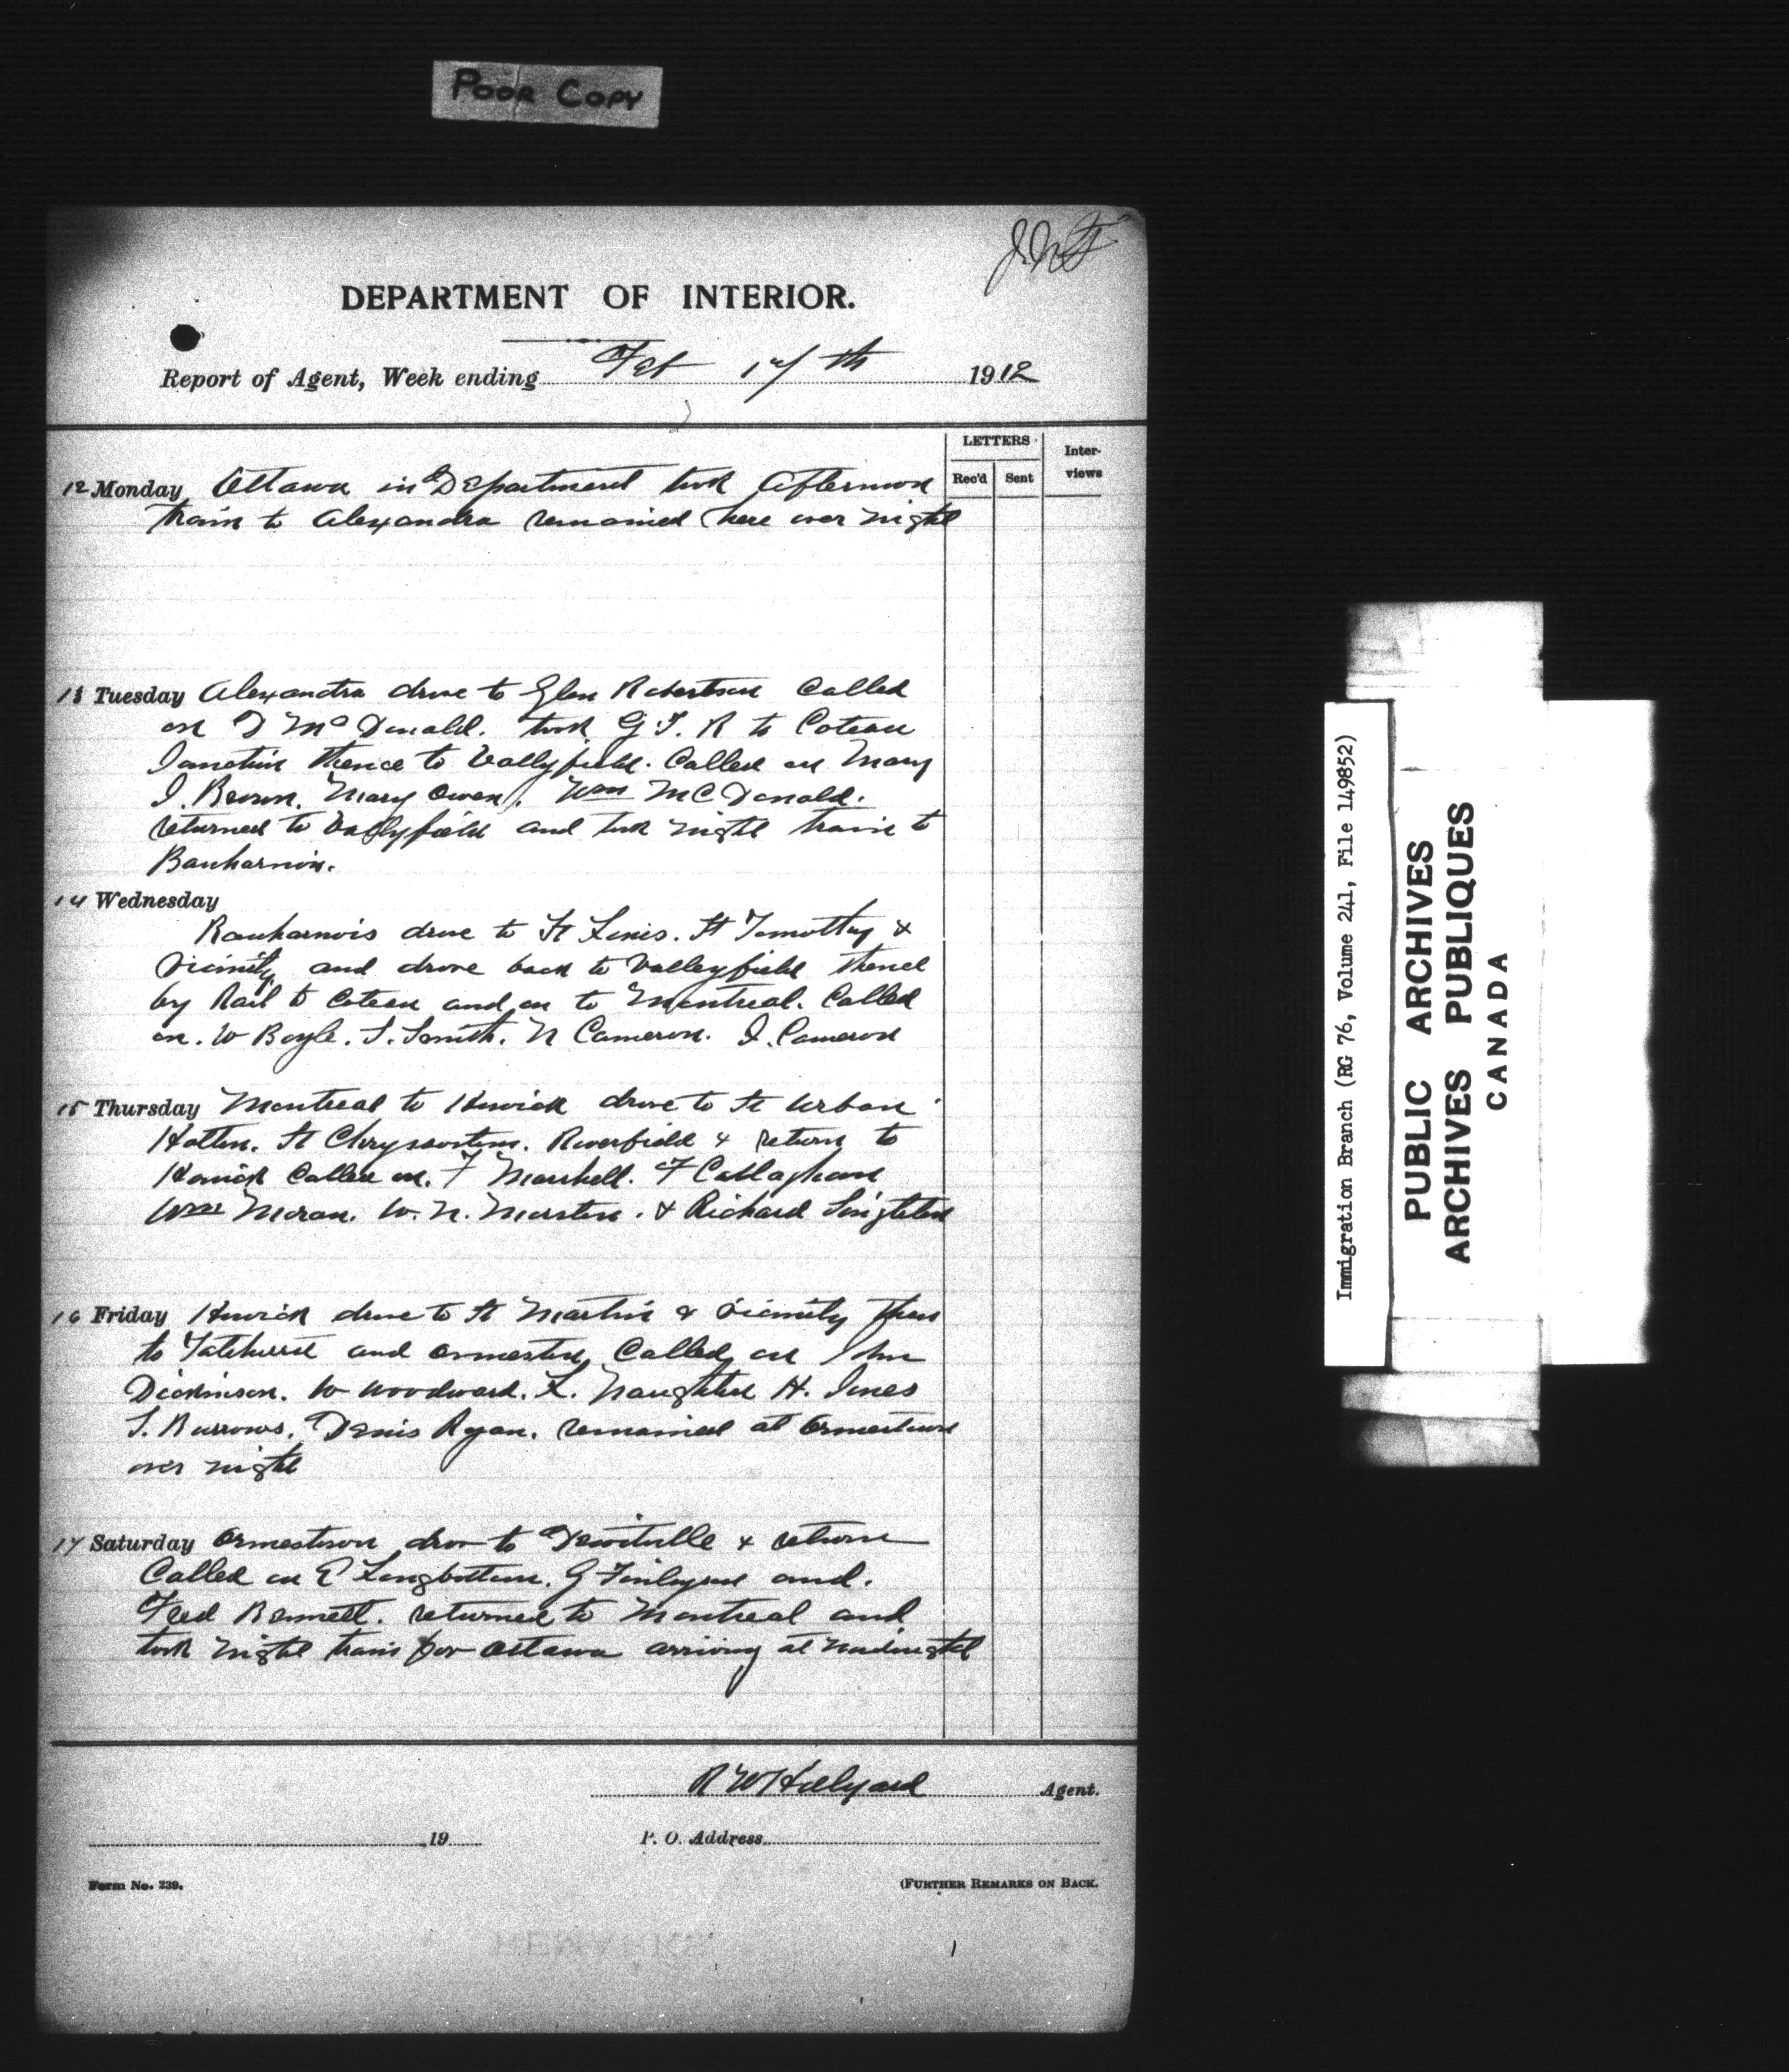 POOR COPY
DEPARTMENT OF INTERIOR.
Report of Agent, Week ending Feb 17th 1912
LETTERS
Inter-views
Rec'd Sent
12 Monday Ottawa in Department took afternoon
train to Alexandra remained here over night
13 Tuesday Alexandra drive to Glen Robertson Called
on D McDonald. took G.T.R to Coteau
Junction thence to Vallyfield. Called on Mary
J. Brown. Mary Owen. Wm McDonald.
returned to Vallyfield and took night train to
Bauharnois.
14 Wednesday
Bauharnois drive to St Louis. St Timothy &
vicinity and drove back to Valleyfield thence
by Rail to Coteau and on to Montreal. Called
on. W Boyle. S. Smith. N Cameron. J. Cameron
15 Thursday Montreal to Howick drove to St Urban
St Chrysostom. Riverfield & return to
Howick Called on. F Marshell. F Callaghan
Wm Moran. W. N. Marston. & Richard Singleton
16 Friday Howick drive to St Martin & vicinity then
to and Ormestown Called on John
Dickinson. W Woodward. L. Naughton H. Jones
S. Burrows. Denis Ryan. remained at Ormestown
over night
17 Saturday Ormestown drove to Dewitville & return
Called on E Longbottom. G Finlayson and.
Fred Bennett. returned to Montreal and
took night train for Ottawa arriving at midnight
R W Hillyard Agent.
19
P. O. Address
Form No. 239.
(FURTHER REMARKS ON BACK.
Immigration Branch (RG 76, Volume 241, File 149852)
PUBLIC ARCHIVES
ARCHIVES PUBLIQUES
CANADA